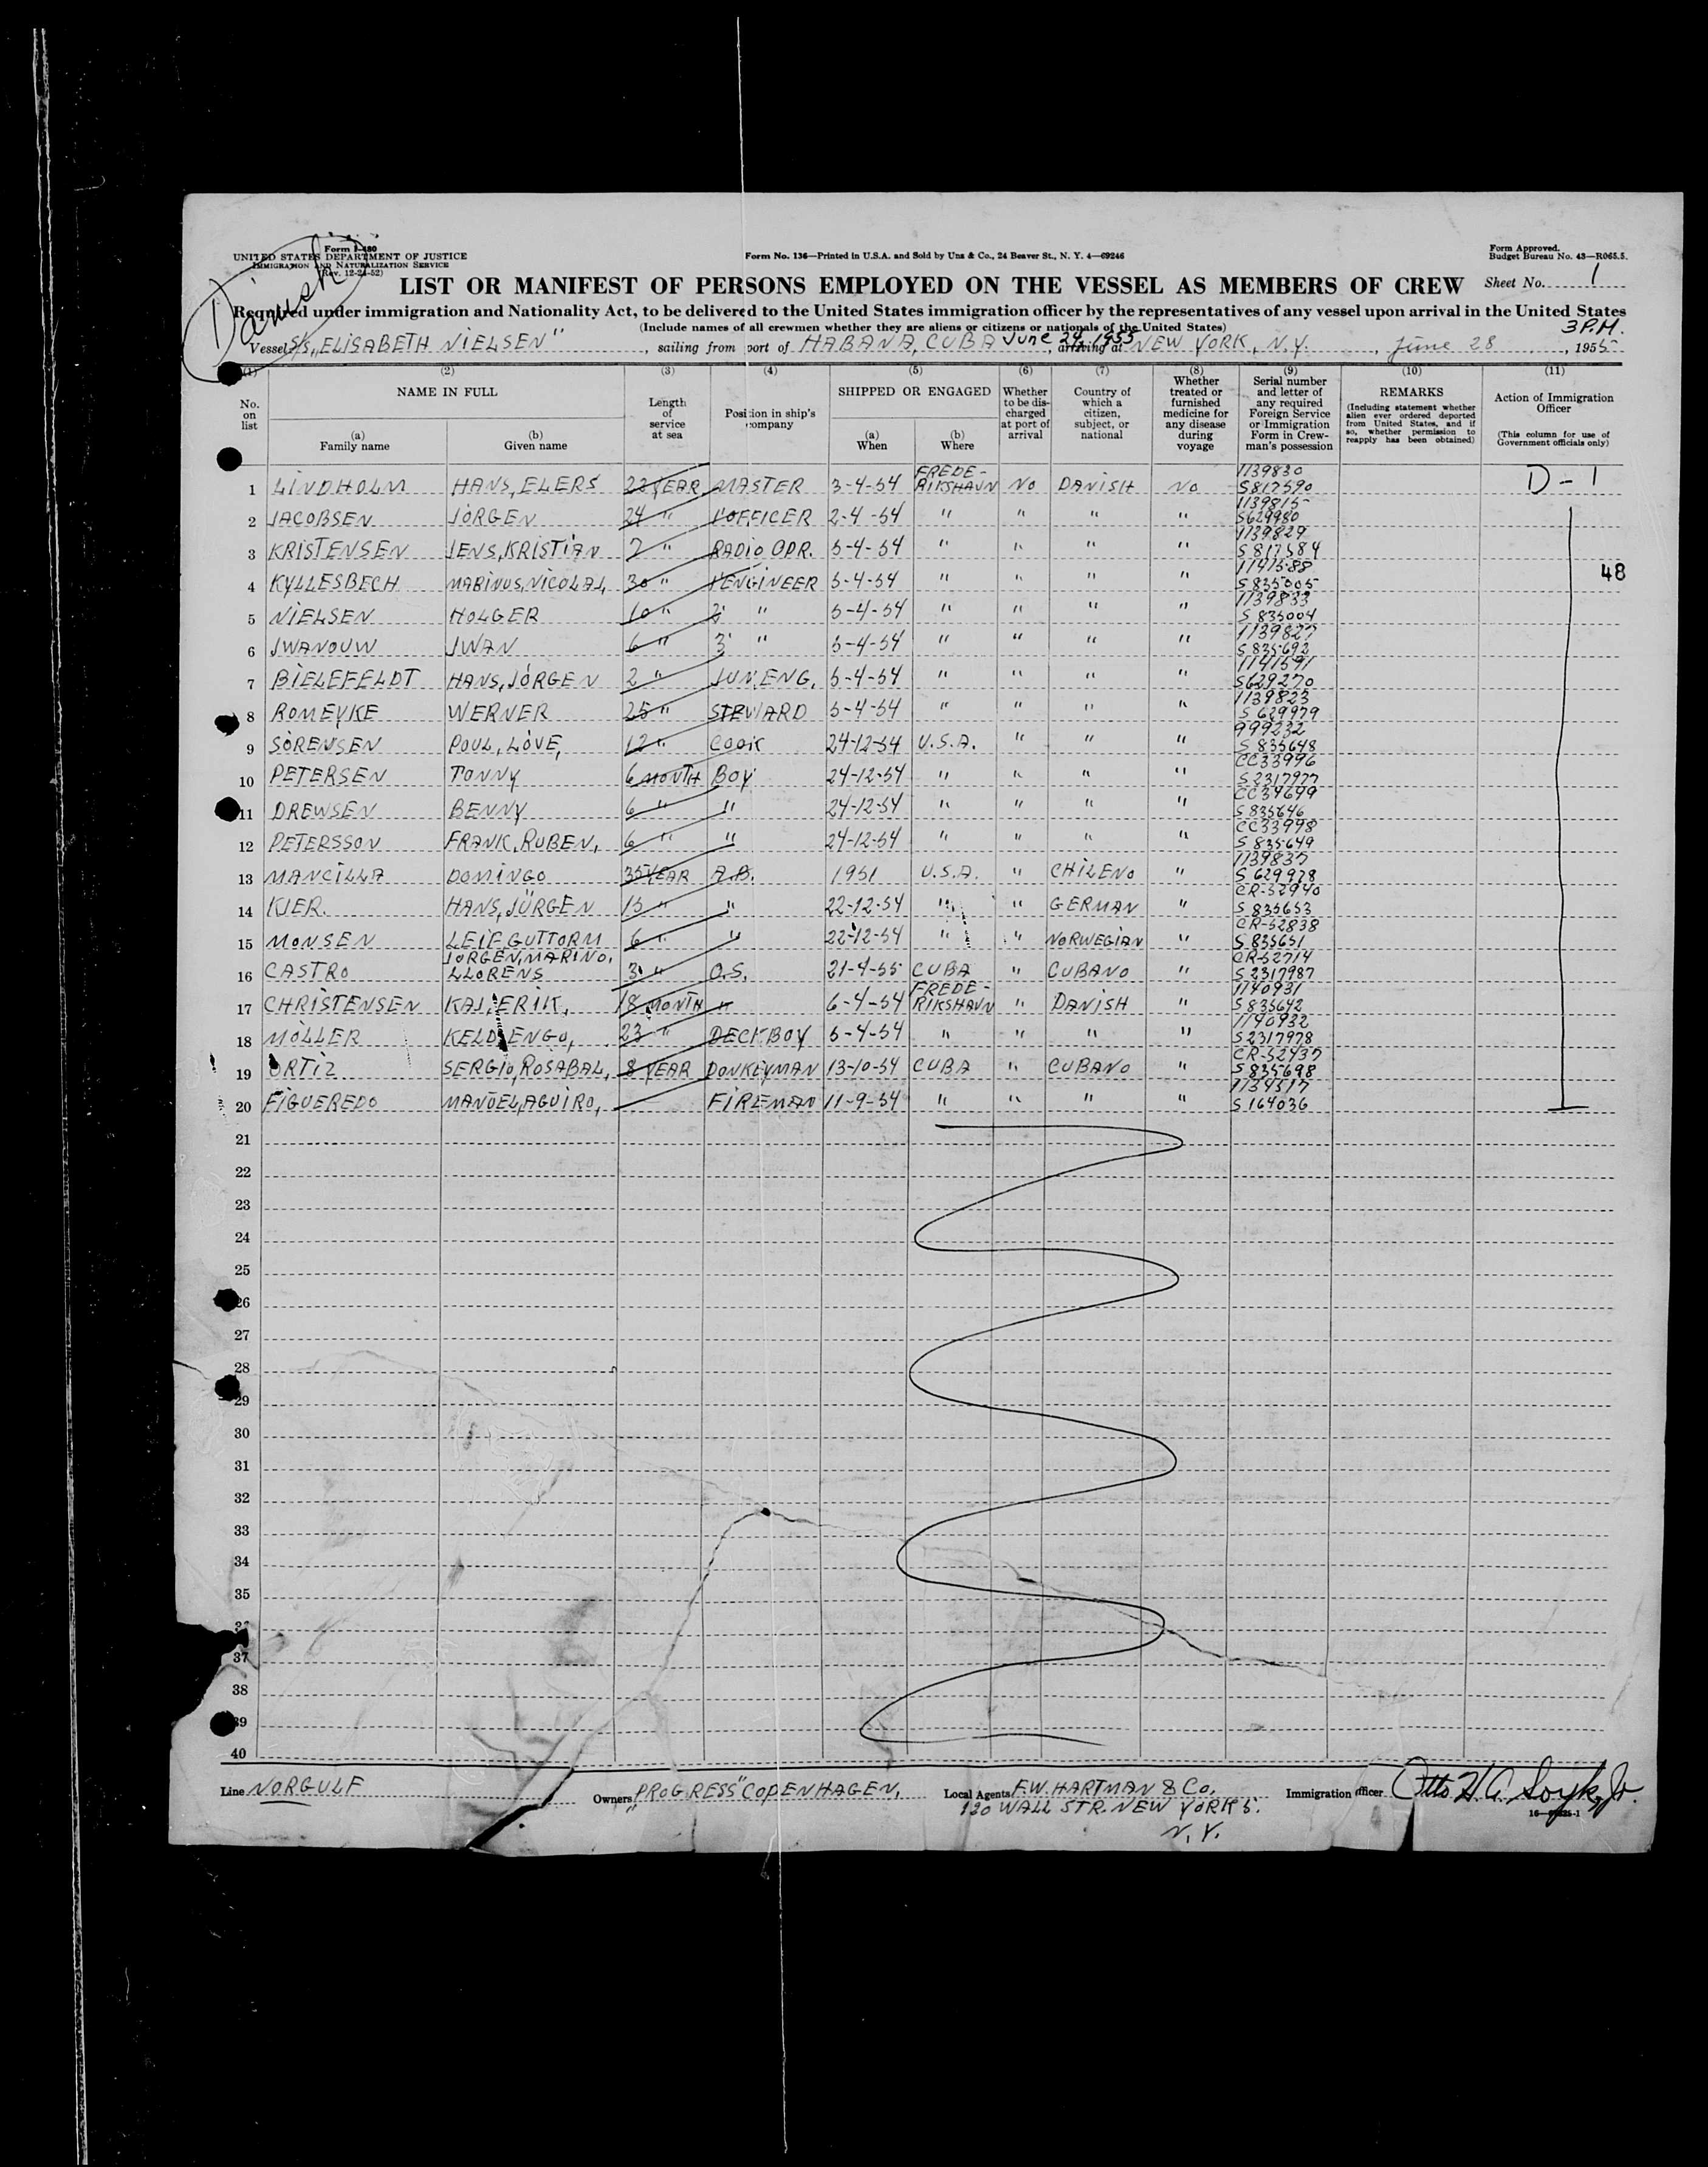 Danish
Form I-480
UNITED STATES DEPARTMENT OF JUSTICE
IMMIGRATION AND NATURALIZATION SERVICE
(Rev. 12-24-52)
Form No. 136—Printed in U.S.A. and Sold by Unz & Co., 24 Beaver St., N. Y. 4—69246
Form Approved.
Budget Bureau No. 43—R065.5.
LIST OR MANIFEST OF PERSONS EMPLOYED ON THE VESSEL AS MEMBERS OF CREW
Sheet No. 1
Required under immigration and Nationality Act, to be delivered to the United States immigration officer by the representatives of any vessel upon arrival in the United States
(Include names of all crewmen whether they are aliens or citizens or nationals of the United States)
3 P.M.
Vessel S/S „ELISABETH NIELSEN", sailing from port of HABANA, CUBA June 24, 1955, arriving at NEW YORK, N.Y., June 28, 1955
(1) No. on list
(2) NAME IN FULL (a) Family name (b) Given name
(3) Length of service at sea
(4) Position in ship's company
(5) SHIPPED OR ENGAGED (a) When (b) Where
(6) Whether to be discharged at port of arrival
(7) Country of which a citizen, subject, or national
(8) Whether treated or furnished medicine for any disease during voyage
(9) Serial number and letter of any required Foreign Service or Immigration Form in Crewman's possession
(10) REMARKS (Including statement whether alien ever ordered deported from United States, and if so, whether permission to reapply has been obtained)
(11) Action of Immigration Officer (This column for use of Government officials only)
1 LINDHOLM HANS, ELERS 22 YEAR MASTER 3-4-54 FREDE-RIKSHAVN NO DANISH NO 1139830 S817590 D-1
2 JACOBSEN JÖRGEN 24 " 1'OFFICER 2-4-54 " " " " 1139815 S629980
3 KRISTENSEN JENS, KRISTIAN 7 " RADIO OPR. 5-4-54 " " " " 1139829 S817584
4 KYLLESBECH MARINUS, NICOLAJ, 30 " 1'ENGINEER 5-4-54 " " " " 1141588 S835005 48
5 NIELSEN HOLGER 10 " 2' " 5-4-54 " " " " 1139833 S835004
6 JWANOUW JWAN 6 " 3' " 5-4-54 " " " " 1139827 S835692
7 BIELEFELDT HANS, JÖRGEN 2 " JUN. ENG. 5-4-54 " " " " 1141591 S629270
8 ROMEYKE WERNER 25 " STEWARD 5-4-54 " " " " 1139823 S629979
9 SÖRENSEN POUL, LÖVE, 12 " COOK 24-12-54 U.S.A. " " " 999232 S835648
10 PETERSEN TONNY 6 MONTH BOY 24-12-54 " " " " CC33996 S2317977
11 DREWSEN BENNY 6 " " 24-12-54 " " " " CC34699 S835646
12 PETERSSON FRANK, RUBEN, 6 " " 24-12-54 " " " " CC33998 S835649
13 MANCILLA DOMINGO 35 YEAR A.B. 1951 U.S.A. " CHILENO " 1139837 S629978
14 KIER. HANS, JÜRGEN 15 " " 22-12-54 " " GERMAN " CR-52940 S835653
15 MONSEN LEIF, GUTTORM 6 " " 22-12-54 " " NORWEGIAN " CR-52838 S835651
16 CASTRO JORGEN, MARINO, LLORENS 3 " O.S. 21-4-55 CUBA " CUBANO " CR-52714 S2317987
17 CHRISTENSEN KAJ, ERIK, 18 MONTH " 6-4-54 FREDE-RIKSHAVN " DANISH " 1140931 S835642
18 MÖLLER KELD, ENGO, 23 " DECKBOY 5-4-54 " " " " 1140932 S2317978
19 ORTIZ SERGIO, ROSABAL, 8 YEAR DONKEYMAN 13-10-54 CUBA " CUBANO " CR-52437 S835698
20 FIGUEREDO MANUEL, AGUIRO, FIREMAN 11-9-54 " " " " 1134517 S164036
21
22
23
24
25
26
27
28
29
30
31
32
33
34
35
37
38
39
40
Line NORGULF
Owners „PROGRESS" COPENHAGEN,
Local Agents F.W. HARTMAN & Co.
120 WALL STR. NEW YORK 5.
N.Y.
Immigration officer Otto H. A. Soyk, Jr.